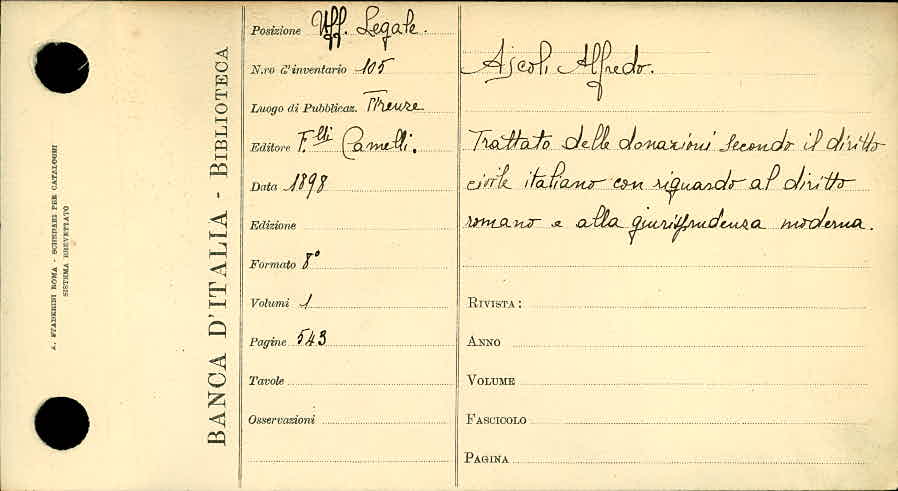 A. STADERINI ROMA - SCHEDARI PER CATALOGHI
SISTEMA BREVETTATO
BANCA D'ITALIA - BIBLIOTECA
Posizione Uff. Legale.
N.ro d'inventario 105
Luogo di Pubblicaz. Firenze
Editore F.lli Camelli.
Data 1898
Edizione
Formato 8°
Volumi 1
Pagine 543
Tavole
Osservazioni
Ascoli Alfredo.
Trattato delle donazioni secondo il diritto
civile italiano con riguardo al diritto
romano e alla giurisprudenza moderna.
RIVISTA:
ANNO
VOLUME
FASCICOLO
PAGINA